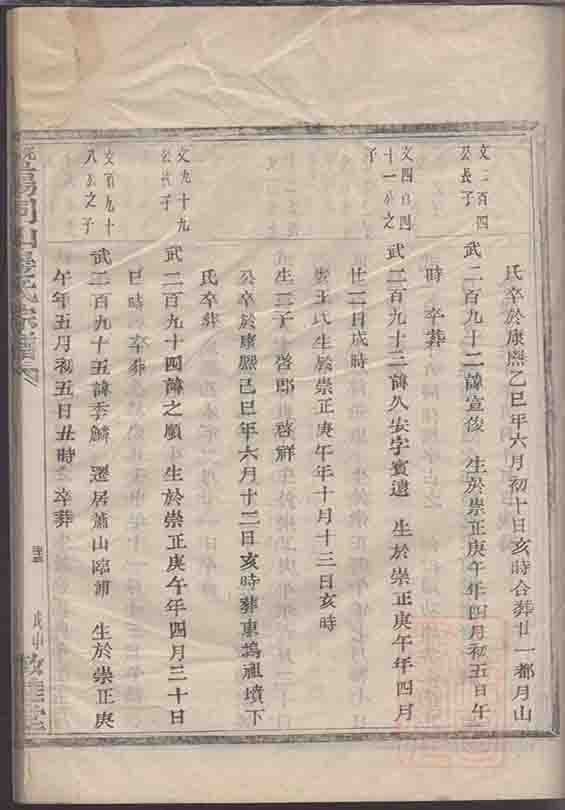 氏卒於康熙乙巳年六月初十日亥時合葬廿一都月山
文二百四
公長子
武二百九十二諱宣俊 生於崇正庚午年四月初五日午
時 卒葬
文四百四
十一公之
子
武二百九十三諱久安字賓遠 生於崇正庚午年四月
廿二日戌時
娶王氏生於崇正庚午年十月十三日亥時
生二子 啓郎 啓祥
公卒於康熙己巳年六月十二日亥時葬東塢祖墳下
氏卒葬
文九十九
公次子
武二百九十四諱之順 生於崇正庚午年四月三十日
巳時 卒葬
文百九十
八公之子
武二百九十五諱季鱗 遷居蕭山臨浦 生於崇正庚
午年五月初五日丑時 卒葬
暨陽同山 氏宗譜
戊申 堂